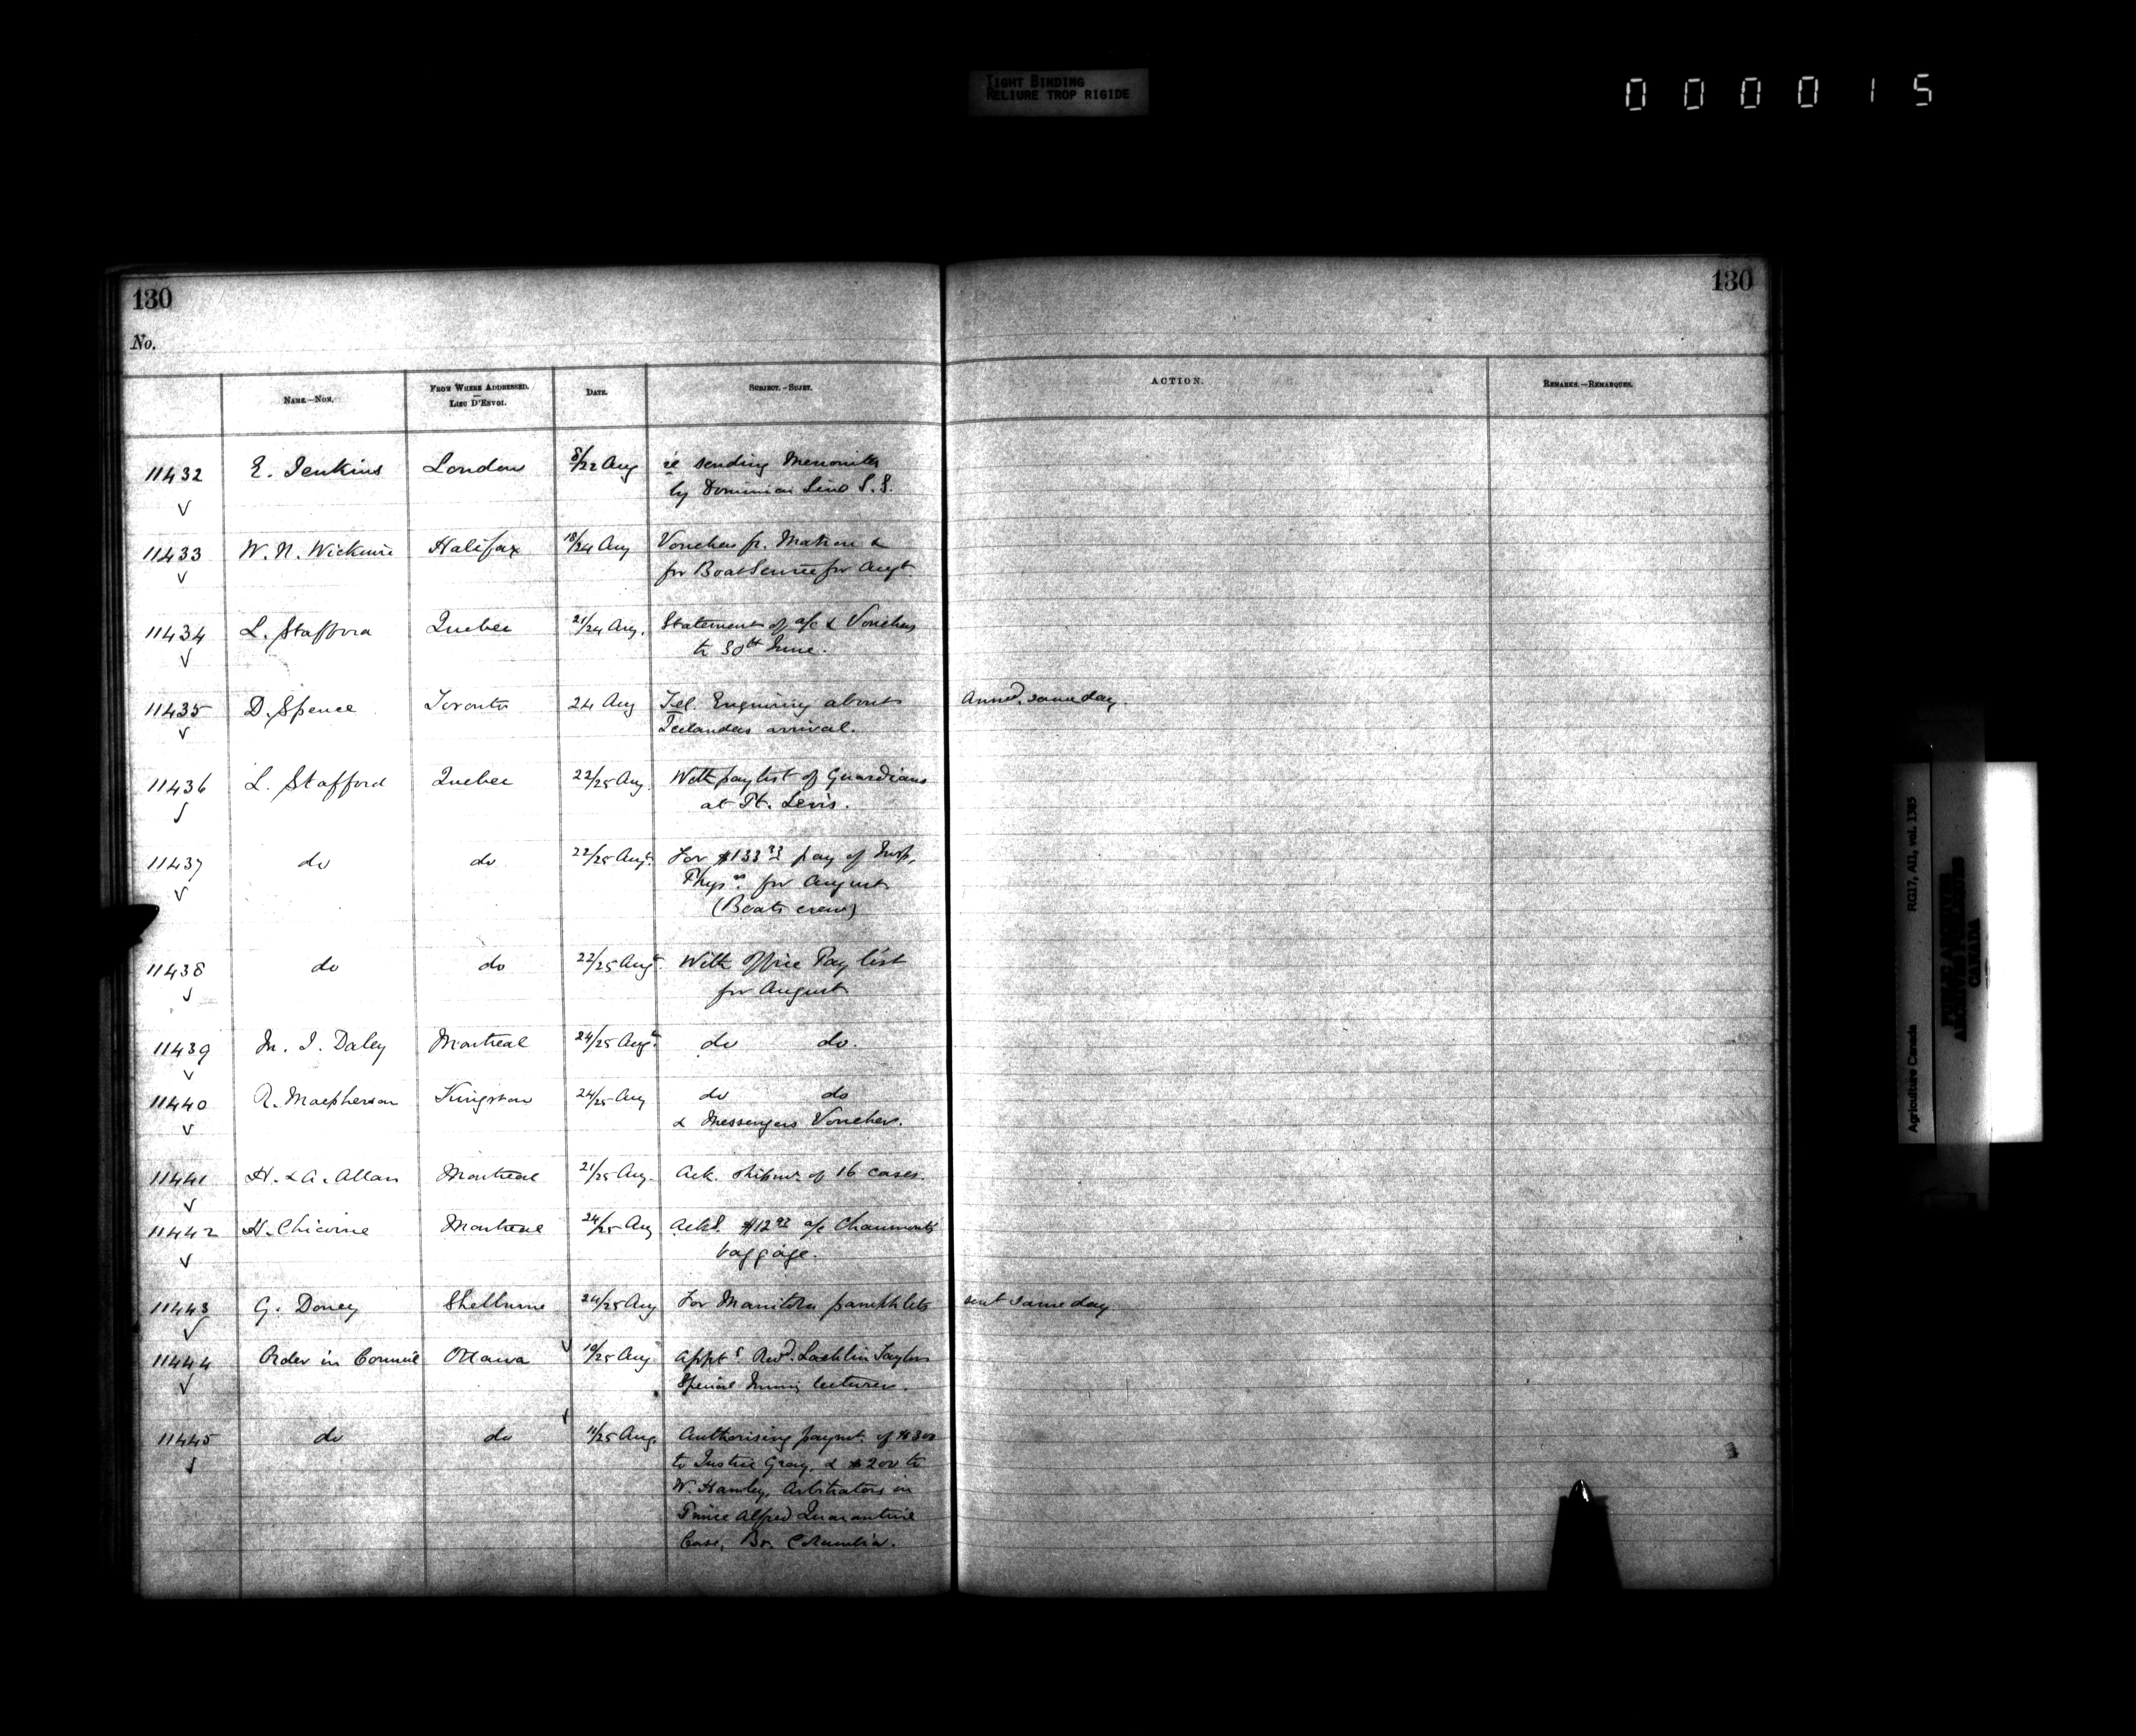 TIGHT BINDING
RELIURE TROP RIGIDE
000015
130
130
No.
NAME.—NOM.
FROM WHERE ADDRESSED.
—
LIEU D'ENVOI.
DATE.
SUBJECT.—SUJET.
ACTION.
REMARKS.—REMARQUES.
11432 E. Jenkins London 8/22 Aug re sending Mennonites
by Dominion Line S.S.
11433 W. N. Wickwire Halifax 18/24 Aug Vouchers fr. Matron &
for Boat Service for Augt.
11434 L. Stafford Quebec 21/24 Aug. Statement of a/c & Vouchers
to 30th June.
11435 D. Spence Toronto 24 Aug Tel. Enquiring about Ansd. same day.
Icelanders arrival.
11436 L. Stafford Quebec 22/25 Aug. With pay list of Guardians
at Pt. Levis.
11437 do do 22/25 Augt. For $133.33 pay of Insp.
Physn. for August
(Boats crew)
11438 do do 22/25 Augt. With Office Pay list
for August
11439 M. I. Daley Montreal 24/25 Augt. do do.
11440 R. Macpherson Kingston 24/25 Aug do do
& Messengers Voucher.
11441 H. & A. Allan Montreal 21/25 Aug. Ack. shipmt. of 16 cases.
11442 H. Chicoine Montreal 24/25 Aug Ackd. $12 a/c Chaumont's
baggage.
11443 G. Doney Shelburne 24/25 Aug For Manitoba pamphlets sent same day
11444 Order in Council Ottawa 19/25 Aug Appt. Revd. Lachlin Taylor
Special Immig lecturer.
11445 do do 11/25 Aug. Authorising paymt. of $300
to Justice Gray, & $200 to
W. Hamley, Arbitrators in
Prince Alfred Quarantine
Case, Br. Columbia.
Agriculture Canada RG17, AII, vol. 1385
PUBLIC ARCHIVES
ARCHIVES PUBLIQUES
CANADA